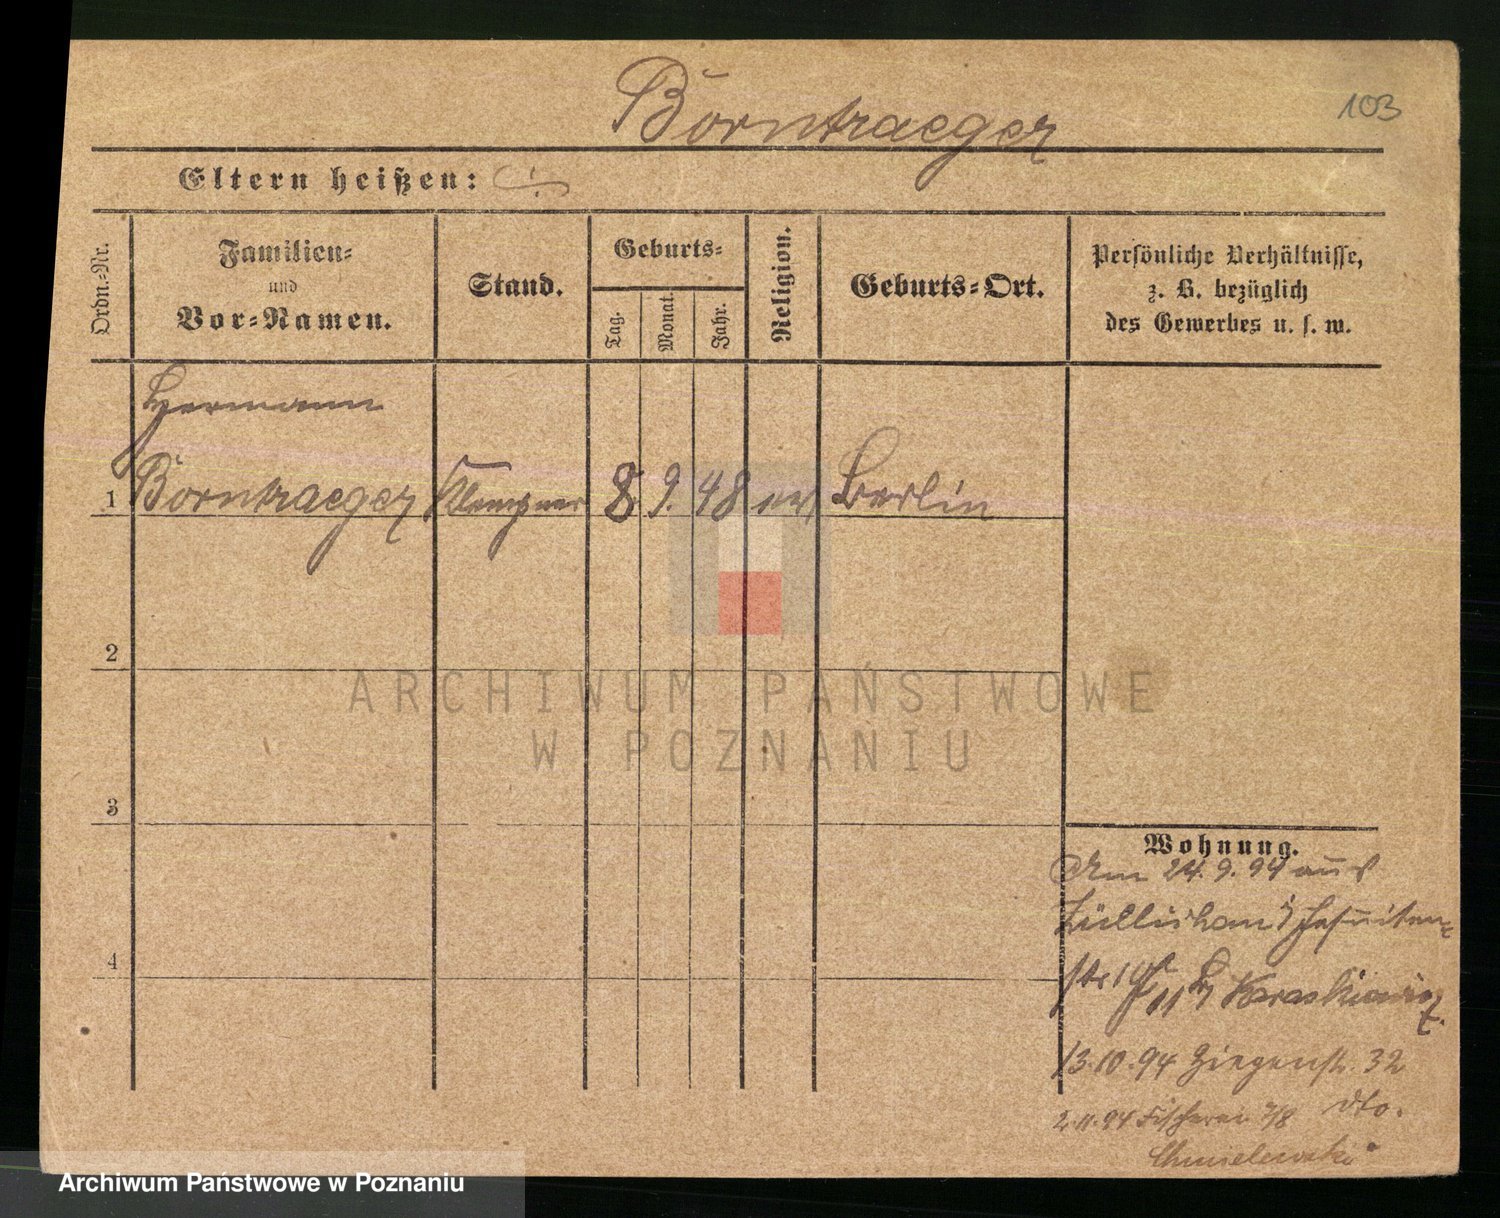 Borntraeger
103
Eltern heißen:
Ordn.-Nr.
Familien-
und
Vor-Namen.
Stand.
Geburts-
Tag.
Monat.
Jahr.
Religion.
Geburts-Ort.
Persönliche Verhältnisse,
z. B. bezüglich
des Gewerbes u. s. w.
Hermann
1 Borntraeger Klempner 8. 9. 48 ev Berlin
2
3
4
Wohnung.
Am 24.9.94 aus
Züllichau Jesuiten-
str
13.10.94 Ziegenstr. 32
dto.
2.11.94 Fischerei 7/8
Chmielewski
ARCHIWUM PAŃSTWOWE
W POZNANIU
Archiwum Państwowe w Poznaniu